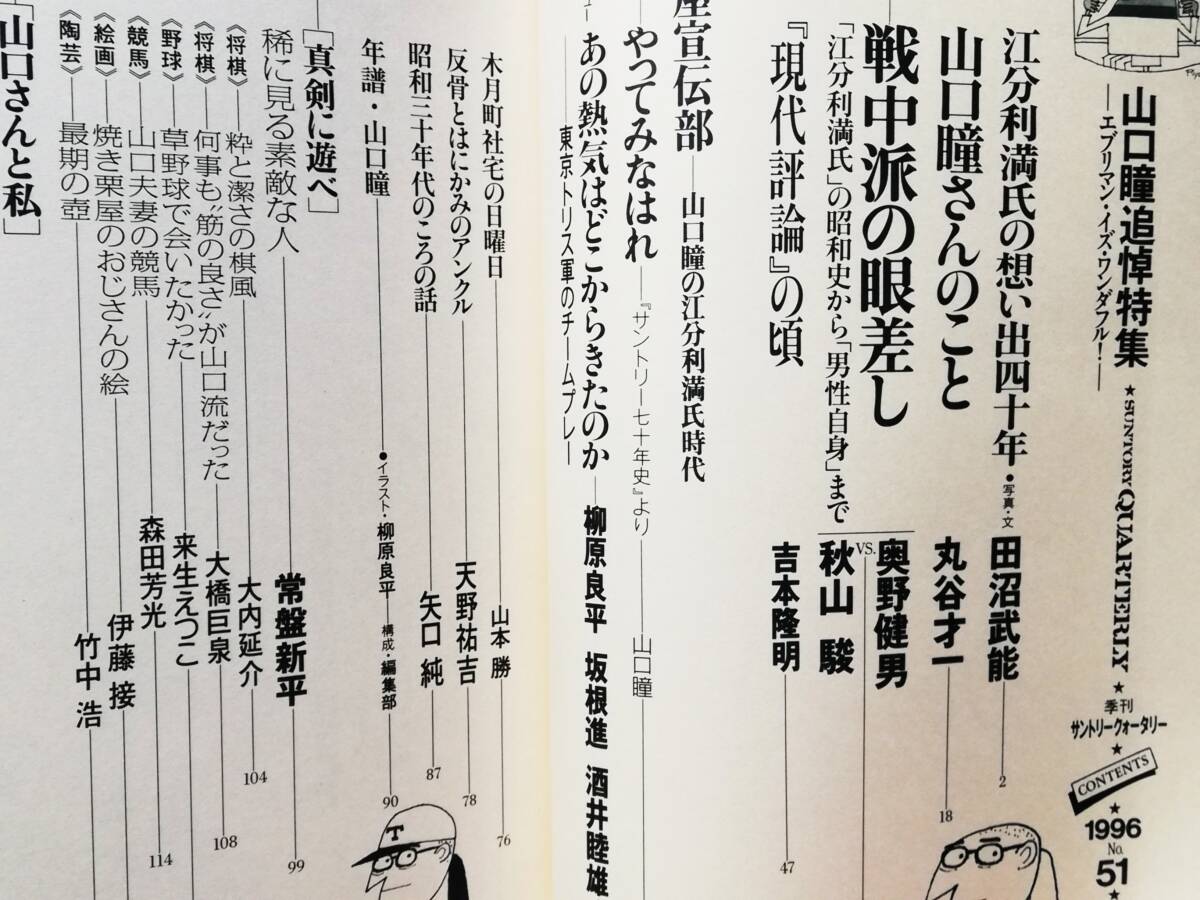 山口瞳追悼特集
―エブリマン・イズ・ワンダフル!―
★SUNTORY QUARTERLY★
季刊
サントリークォータリー
★
CONTENTS
★
1996
No.
51
★
江分利満氏の想い出四十年●写真・文 田沼武能 2
山口瞳さんのこと 丸谷才一 18
戦中派の眼差し 奥野健男
VS.
「江分利満氏」の昭和史から「男性自身」まで 秋山 駿
『現代評論』の頃 吉本隆明 47
座宣伝部―山口瞳の江分利満氏時代
やってみなはれ―『サントリー七十年史』より―山口瞳
ュー あの熱気はどこからきたのか―柳原良平 坂根進 酒井睦雄
―東京トリス軍のチームプレー
木月町社宅の日曜日 山本 勝 76
反骨とはにかみのアンクル 天野祐吉 78
昭和三十年代のころの話 矢口 純 87
年譜・山口瞳 ●イラスト・柳原良平―構成・編集部 90
T
[真剣に遊べ]
稀に見る素敵な人 常盤新平 99
《将棋》粋と潔さの棋風 大内延介 104
《将棋》何事も“筋の良さ”が山口流だった 大橋巨泉 108
《野球》草野球で会いたかった 来生えつこ
《競馬》山口夫妻の競馬 森田芳光 114
《絵画》焼き栗屋のおじさんの絵 伊藤接
《陶芸》最期の壺 竹中 浩
[山口さんと私]